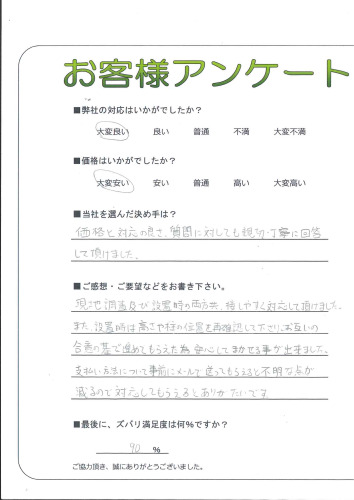 お客様アンケート
■弊社の対応はいかがでしたか？
大変良い 良い 普通 不満 大変不満
■価格はいかがでしたか？
大変安い 安い 普通 高い 大変高い
■当社を選んだ決め手は？
価格と対応の良さ、質問に対しても親切・丁寧に回答
して頂けました。
■ご感想・ご要望などをお書き下さい。
現地調査及び設置時の両方共、接しやすく対応して頂けました。
また、設置時は高さや柱の位置を再確認して下さり、お互いの
合意の基で進めてもらえた為 安心してまかせる事が出来ました。
支払い方法について事前にメールで送ってもらえると不明な点が
減るので対応してもらえるとありがたいです
■最後に、ズバリ満足度は何%ですか？
90 %
ご協力頂き、誠にありがとうございました。